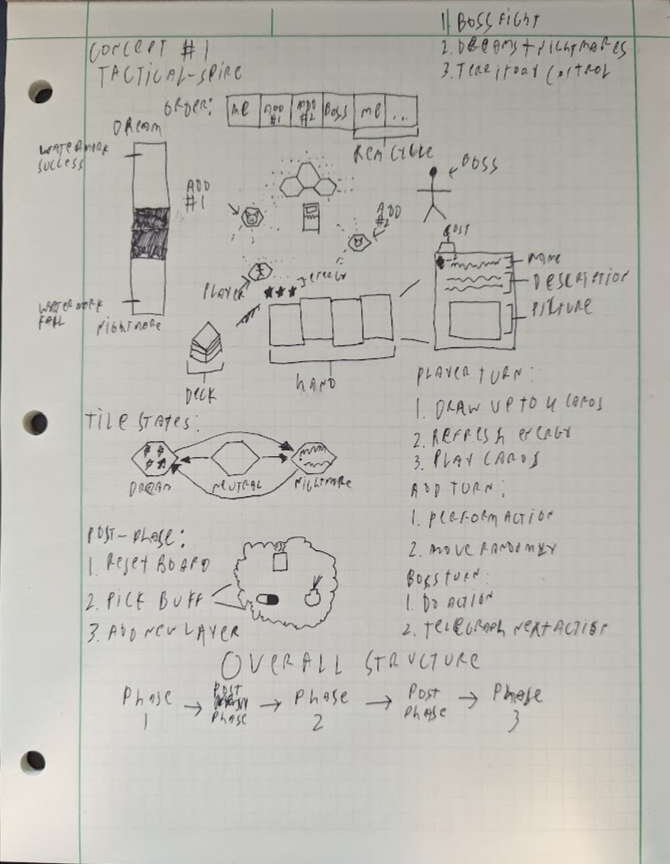 1. BOSS FIGHT
2. DREAMS + NIGHTMARES
3. TERRITORY CONTROL
CONCEPT #1
TACTICAL-SPIRE
ORDER: ME ADD #1 ADD #2 BOSS ME ...
RECYCLE
DREAM
WATERMARK SUCCESS
WATERMARK FAIL
NIGHTMARE
ADD #1
ADD #2
BOSS
PLAYER
ENERGY
COST
NAME
DESCRIPTION
PICTURE
DECK
HAND
PLAYER TURN:
1. DRAW UP TO 4 CARDS
2. REFRESH ENERGY
3. PLAY CARDS
ADD TURN:
1. PERFORM ACTION
2. MOVE RANDOMLY
BOSS TURN:
1. DO ACTION
2. TELEGRAPH NEXT ACTION
TILE STATES:
DREAM NEUTRAL NIGHTMARE
POST-PHASE:
1. RESET BOARD
2. PICK BUFF
3. ADD NEW LAYER
OVERALL STRUCTURE
PHASE 1 → POST PHASE → PHASE 2 → POST PHASE → PHASE 3